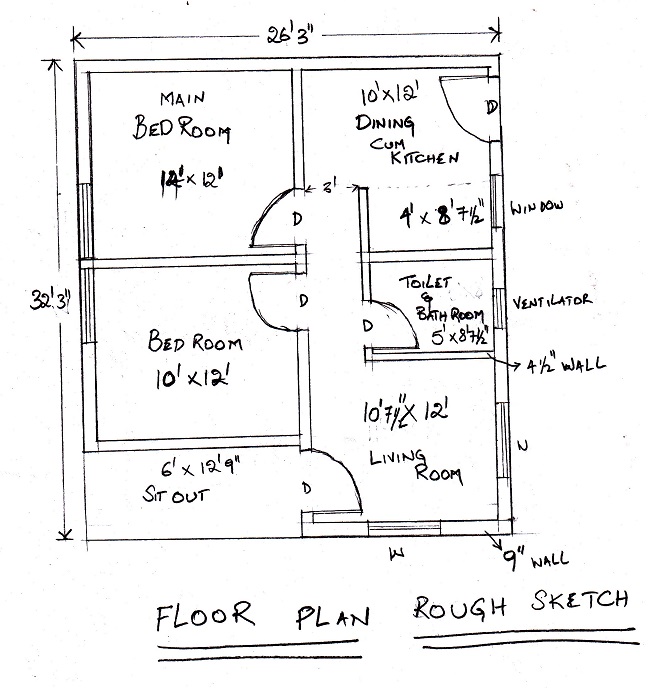 26'3"
MAIN
BED ROOM
12' x 12'
10' x 12'
DINING
CUM
KITCHEN
D
3'
D
4' x 8'7½"
WINDOW
32'3"
D
TOILET
&
BATH ROOM
5' x 8'7½"
D
VENTILATOR
BED ROOM
10' x 12'
4½" WALL
10'7½" x 12'
LIVING
ROOM
W
6' x 12'9"
SIT OUT
D
W
9" WALL
FLOOR PLAN ROUGH SKETCH